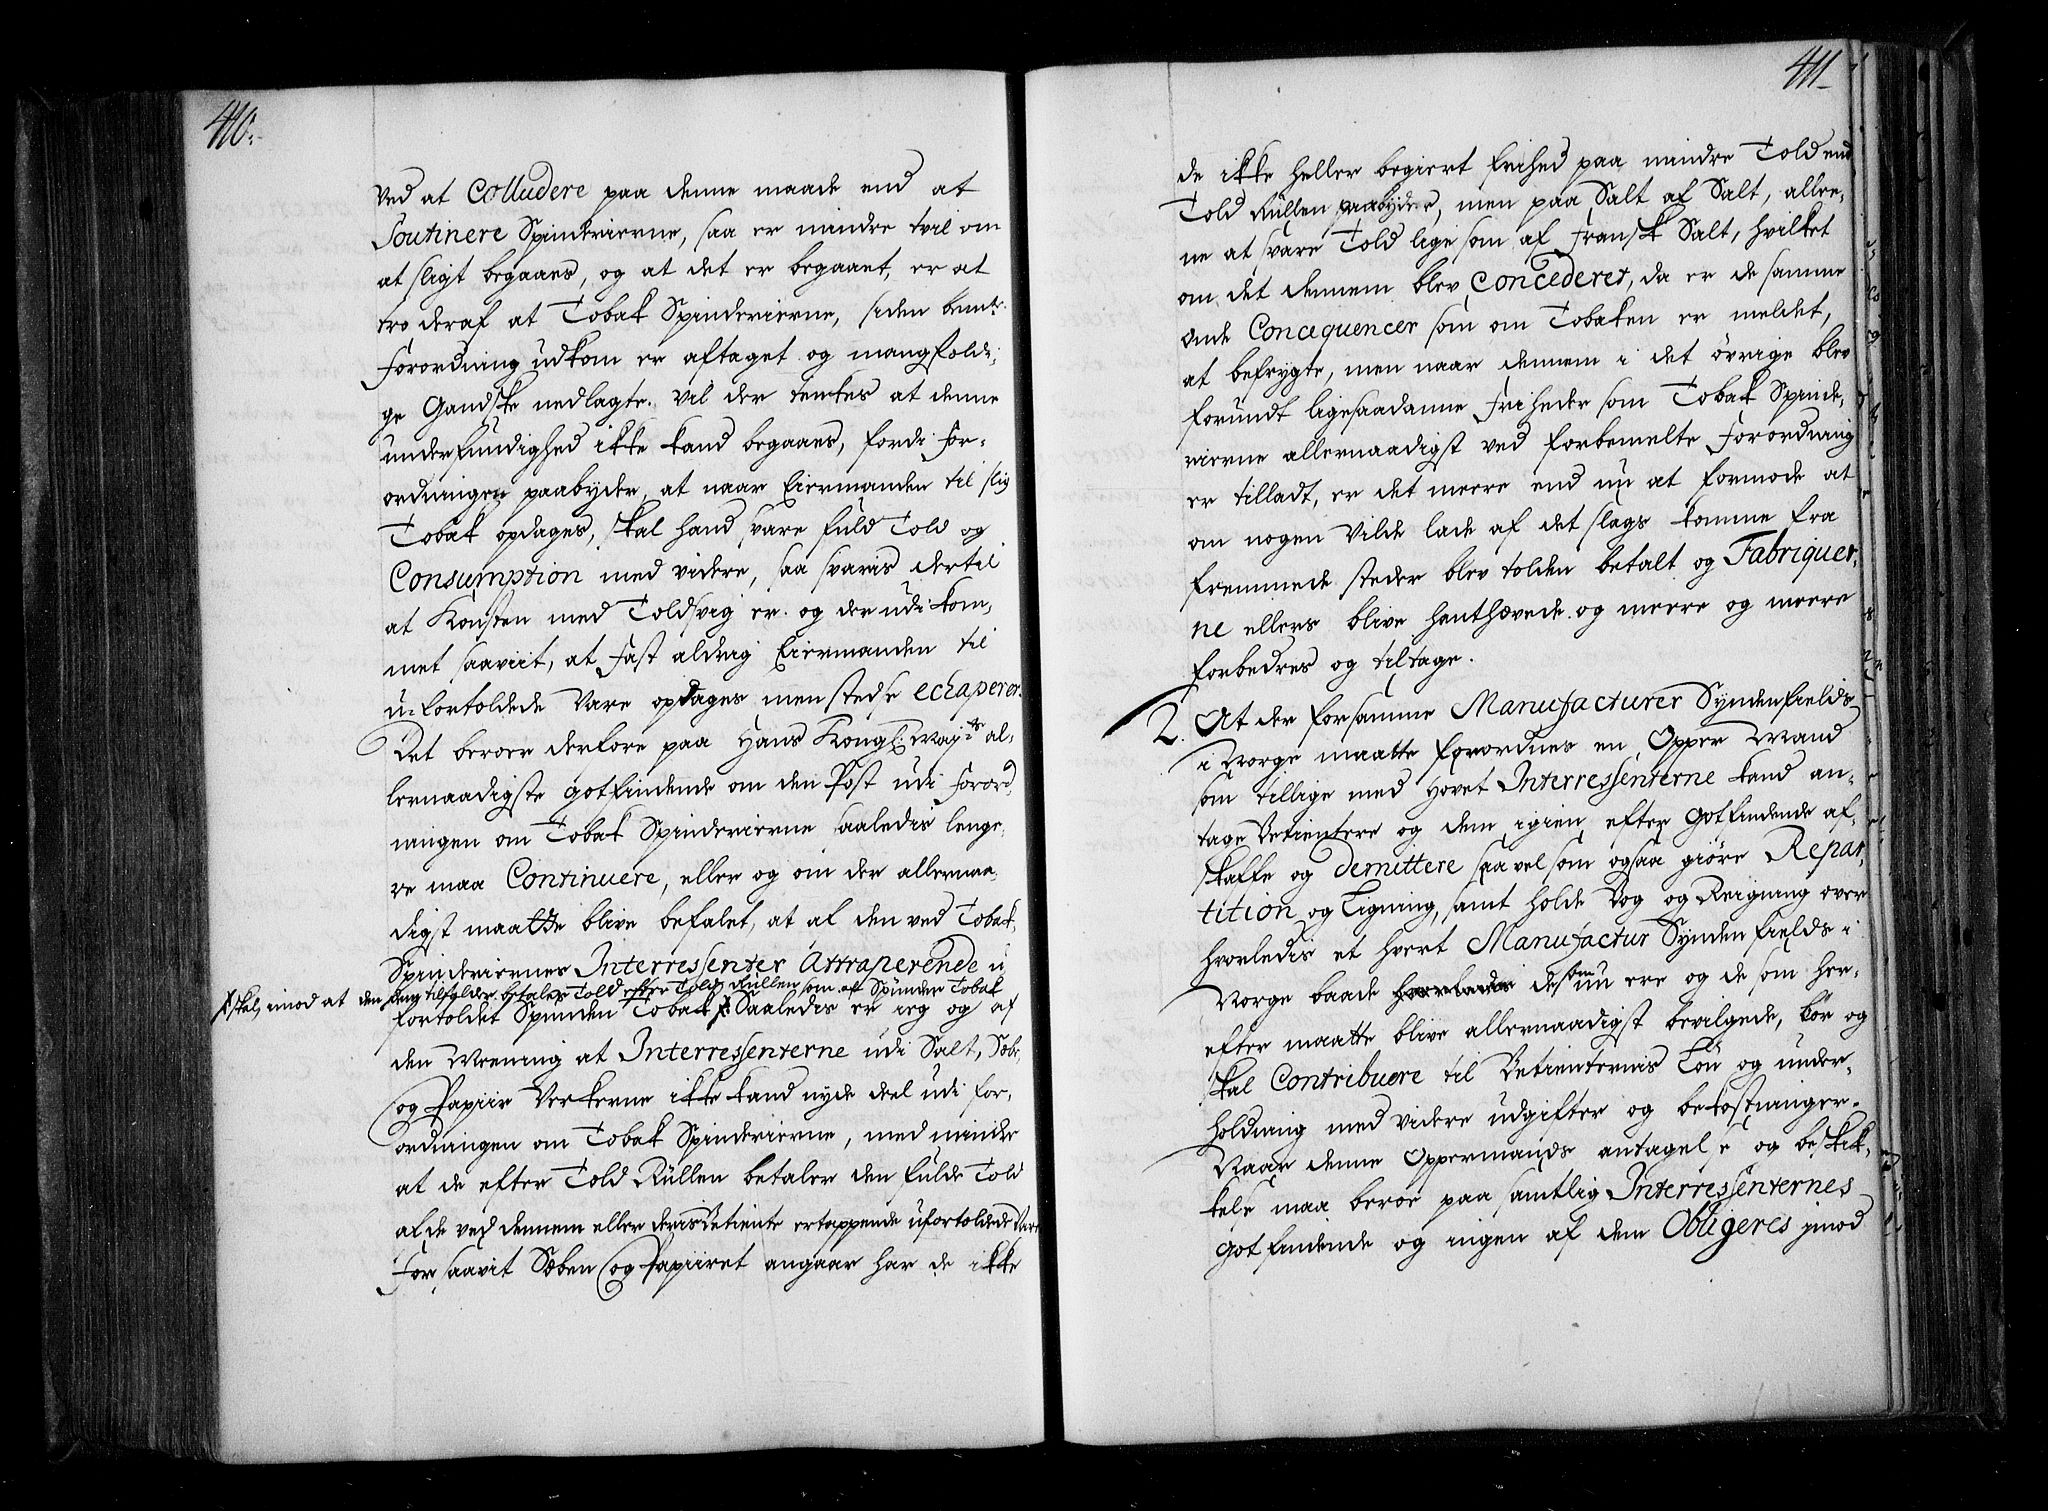 410.
Ved at Colludere paa denne maade end at
Soutinere Spinderierne, saa er mindre tvil om
at sligt begaaes, og at det er begaaet, er at
troe deraf at Tobak Spinderierne, siden bemte
Forordning udkom er aftaget og mangfoldi-
ge Gandske nedlagte. Vil der tenkes at denne
underfundighed ikke kand begaaes, fordi For-
ordningen paabyder, at naar Eiermanden til slig
Tobak opdages, skal hand svare fuld Told og
Consumption med videre, saa svaris dertil
at Konsten med Toldsvig er og der udi kom-
met saaviit, at fast aldrig Eiermanden til
u-fortoldede Vare opdages men stedse echaperer.
Det beroer derfore paa Hans Kongl: May:ts al-
lernaadigste gotfindende om den Post udi Forord-
ningen om Tobak Spinderierne saaledis lenge-
re maa Continuere, eller og om der allernaa-
digst maatte blive befalet, at af den ved Tobak-
Spinderiernes Interressenter Attraperende u
skal, imod at den dem tilfalder betales Told efter Told Rullen som af Spunden Tobak
fortoldet Spunden Tobak Saaledis er ieg og af
den Meening at Interressenterne udi Salt, Sæbe,
og Papiir Verkerne ikke kand nyde deel udi for-
ordningen om Tobak Spinderierne, med mindre
at de efter Told Rullen betaler den fulde Told
af de ved dennem eller deris Betiente ertappende ufortoldede Vare
For saavit Sæben og Papiiret angaar har de ikke
411
de ikke heller begiert frihed paa mindre Told end
Told Rullen paabyder, men paa Salt af Salt, allee-
ne at svare Told lige som af Fransk Salt, hvilket
om det dennem blev Concederet, da er de samme
onde Concequencer som om Tobaken er meldet,
at befrygte, men naar dennem i det øvrige blev
forundt ligesaadanne Friheder som Tobak Spinde-
rierne allernaadigst ved forbemelte Forordning
er tilladt, er det meere end nu at formode at
om nogen vilde lade af det slags komme fra
fremmede steder blev tolden betalt og Fabriquer-
ne ellers blive hanthævede og meere og meere
forbedres og tiltage.
2. At der for samme Manufacturer Syndenfields
i Norge maatte forordnes en Opper Mand
som tillige med Hovet Interressenterne kand an-
tage Betientere og dem igien efter Gotfindende af-
skaffe og demittere saavel som ogsaa giøre Repar-
tition og Ligning, samt holde Bog og Reigning over
hvorledis et hvert Manufactur Syndenfields i
Norge baade hvorledis de som nu ere og de som her-
efter maatte blive allernaadigst bevilgede, bør og
skal Contribuere til Betienternis Løn og under-
holdning med videre udgifter og bekostninger.
Naar denne Oppermands antagelse og beskik-
kelse maa beroe paa samtlig Interressenternes
Gotfindende og ingen af dem Obligeres imod